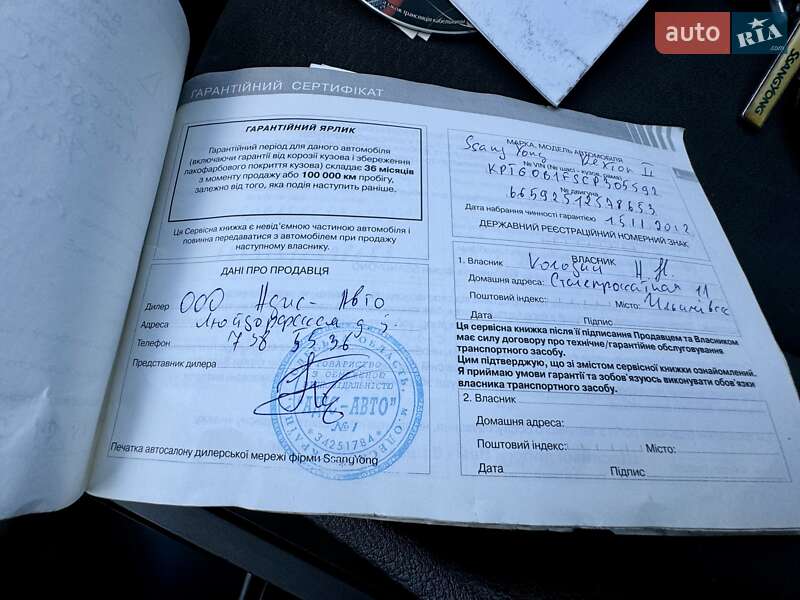 auto RIA.com
SSANGYONG
ГАРАНТІЙНИЙ СЕРТИФІКАТ
ГАРАНТІЙНИЙ ЯРЛИК
Гарантійний період для даного автомобіля
(включаючи гарантії від корозії кузова і збереження
лакофарбового покриття кузова) складає 36 місяців
з моменту продажу або 100 000 км пробігу,
залежно від того, яка подія наступить раніше.
Ця Сервісна книжка є невід'ємною частиною автомобіля і
повинна передаватися з автомобілем при продажу
наступному власнику.
ДАНІ ПРО ПРОДАВЦЯ
Дилер ООО Адис-Авто
Адреса
Телефон 738 55 36
Представник дилера
ТОВАРИСТВО
З ОБМЕЖЕНОЮ
"АДІС-АВТО"
№1
*34251784*
Печатка автосалону дилерської мережі фірми SsangYong
МАРКА, МОДЕЛЬ АВТОМОБІЛЯ
SsangYong Rexton II
№ VIN (№ шасі - кузов, рама)
KPTG0B1FSCP305592
№ двигуна
66592512578653
Дата набрання чинності гарантією 15.11.2012
ДЕРЖАВНИЙ РЕЄСТРАЦІЙНИЙ НОМЕРНИЙ ЗНАК
ВЛАСНИК
1. Власник
Домашня адреса: 11
Поштовий індекс: Місто:
Дата Підпис
Ця сервісна книжка після її підписання Продавцем та Власником
має силу договору про технічне/гарантійне обслуговування
транспортного засобу.
Цим підтверджую, що зі змістом сервісної книжки ознайомлений.
Я приймаю умови гарантії та зобов'язуюсь виконувати обов'язки
власника транспортного засобу.
2. Власник
Домашня адреса:
Поштовий індекс: Місто:
Дата Підпис